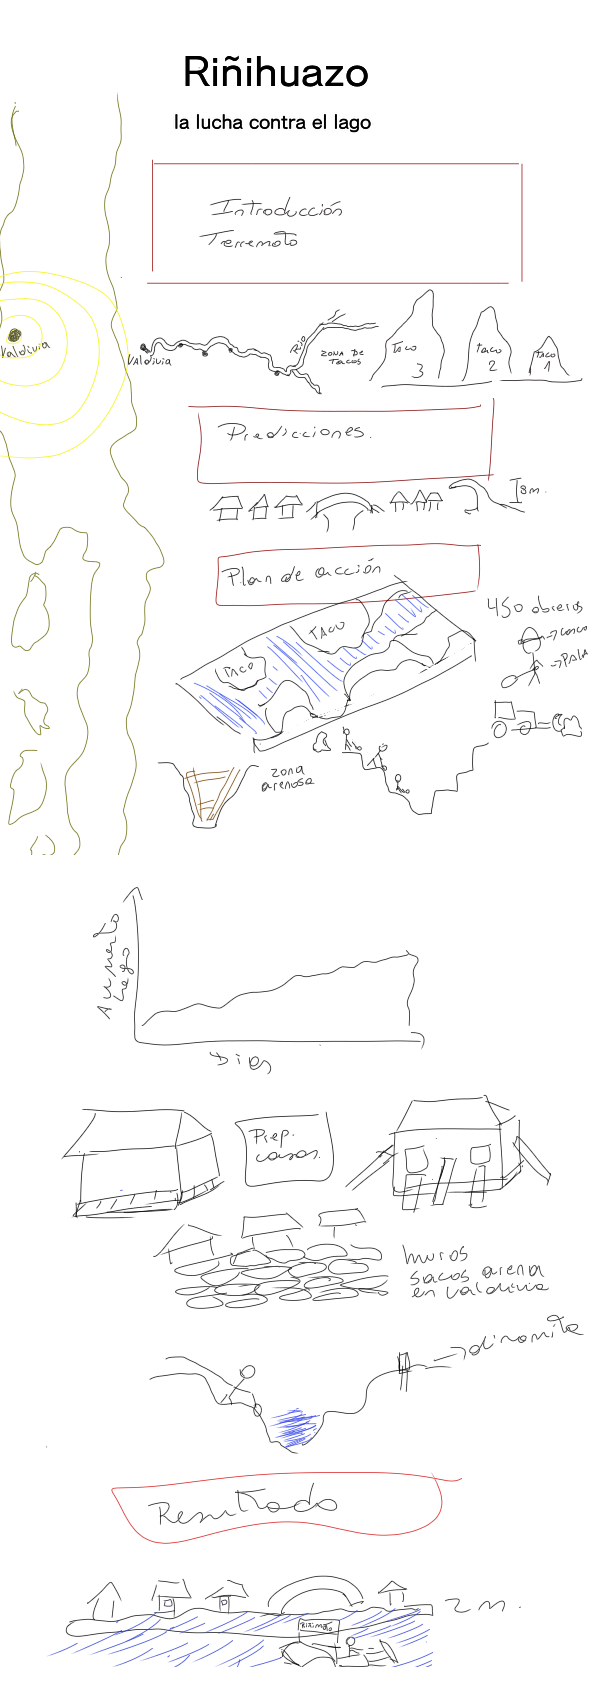 Riñihuazo
la lucha contra el lago
Introducción
Terremoto
Valdivia
Valdivia
Rio
ZONA DE
TACOS
Taco
3
Taco
2
TACO
1
Predicciones.
8m.
Plan de acción
450 obreros
→casco
→PALA
TACO
TACO
zona
arenosa
Aumento
Lago
Dias
Prep.
casas.
muros
sacos arena
en valdivia
→dinamita
Resultado
2 m.